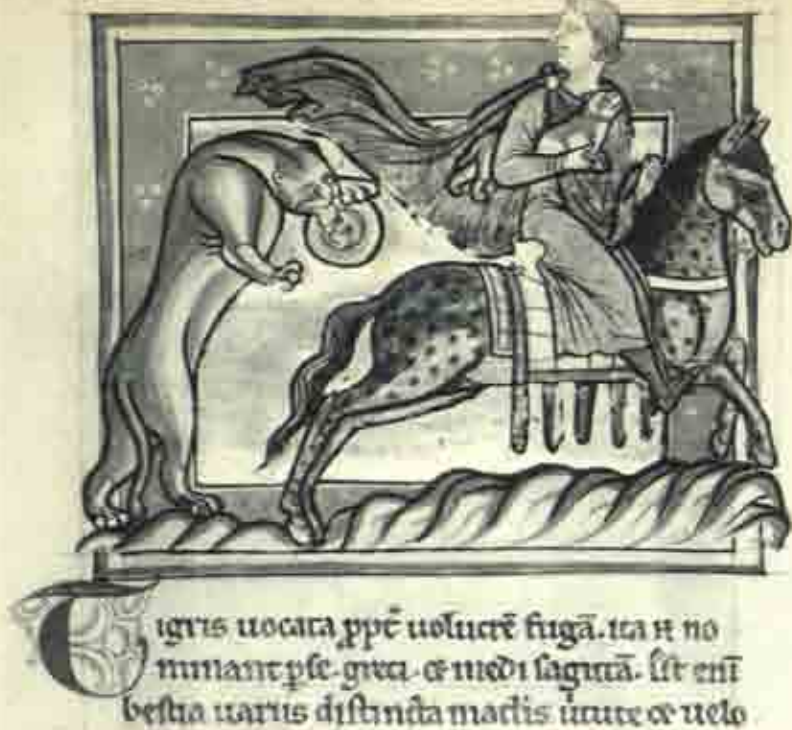 Tigris uocata ppť uolucrē fugā. ita ⁊ no
minant pse. greci. & medi sagittā. Est eni
bestia uariis distincta maclis uirtute & uelo